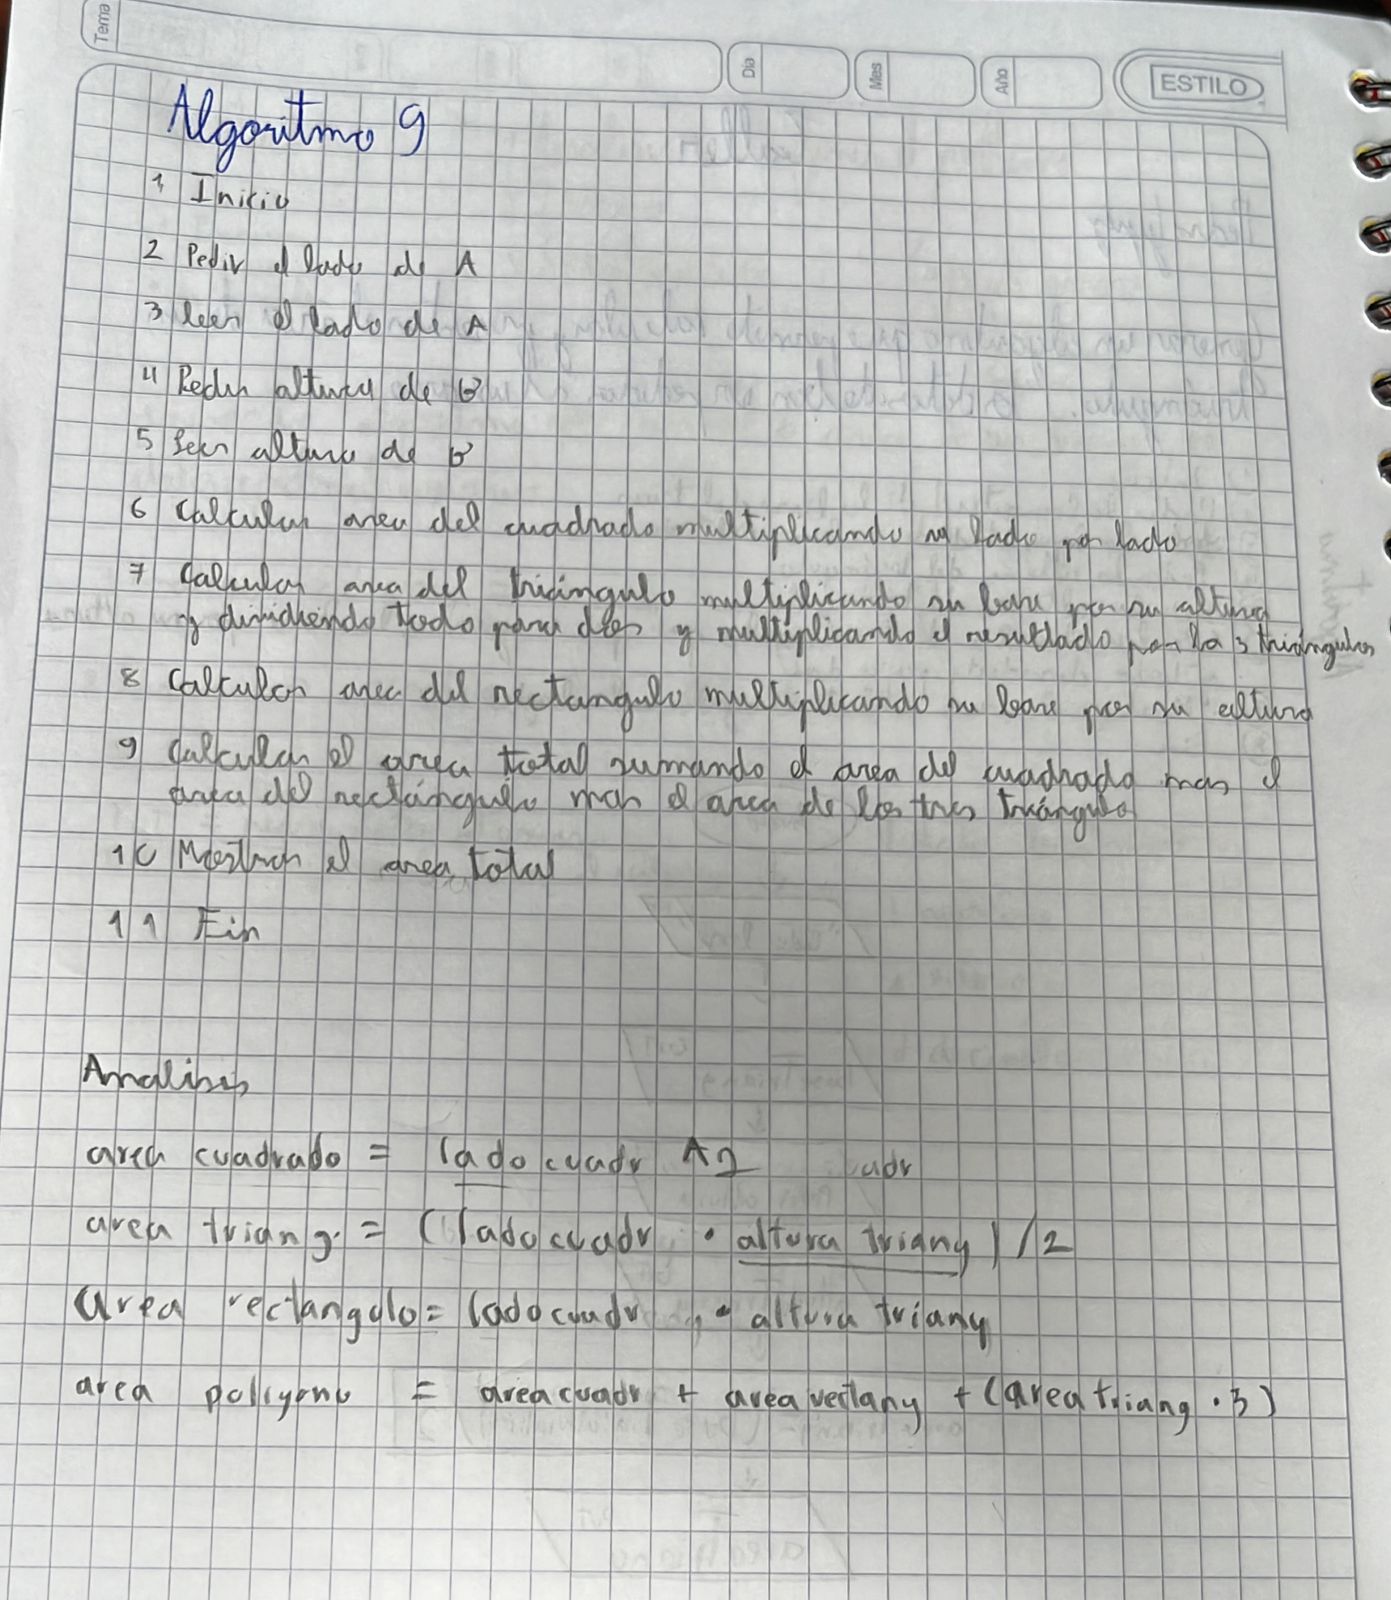 Tema
Dia
Mes
Año
ESTILO
Algoritmo 9
1 Inicio
2 Pedir el lado de A
3 leer el lado de A
4 Pedir altura de B
5 Leer altura de B
6 Calcular area del cuadrado multiplicando su lado por lado
7 Calcular area del triángulo multiplicando su base por su altura
y dividiendo todo para dos y multiplicando el resultado por los 3 triángulos
8 Calcular area del rectangulo multiplicando su base por su altura
9 Calcular el area total sumando el area del cuadrado mas el
area del rectángulo mas el area de los tres triángulo
10 Mostrar el area total
11 Fin
Analisis
area cuadrado = lado cuadr ^2 uadr
area triang. = (lado cuadr . altura triang) /2
area rectangulo = lado cuadr . altura triang
area poligono = area cuadr + area rectang + (area triang . 3)